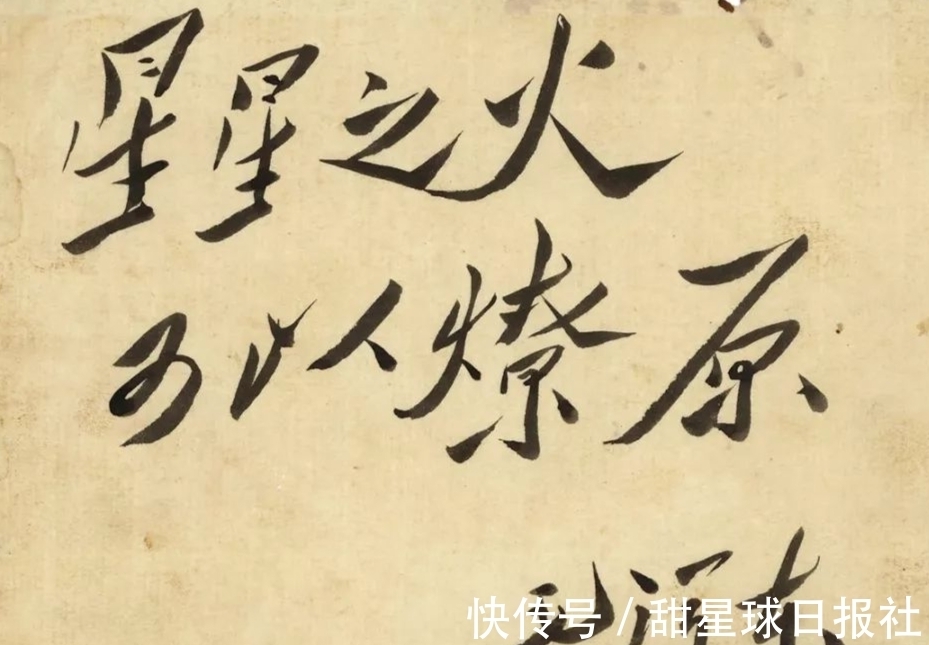 星星之火
可以燎原
毛泽东
快传号 / 甜星球日报社